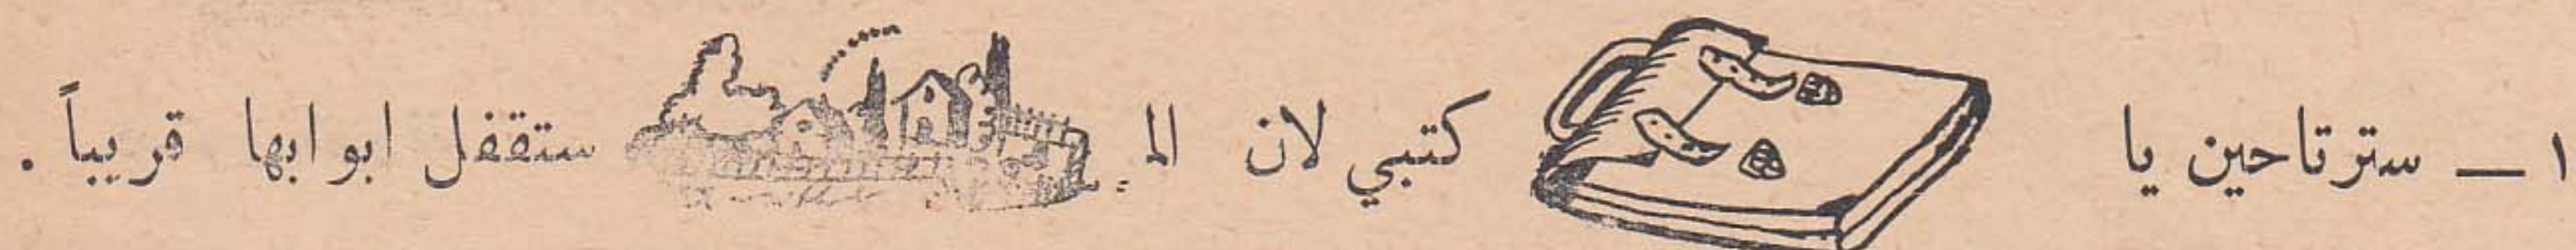 ١ — سترتاحين يا كتبي لان الم ستقفل ابوابها قريباً .